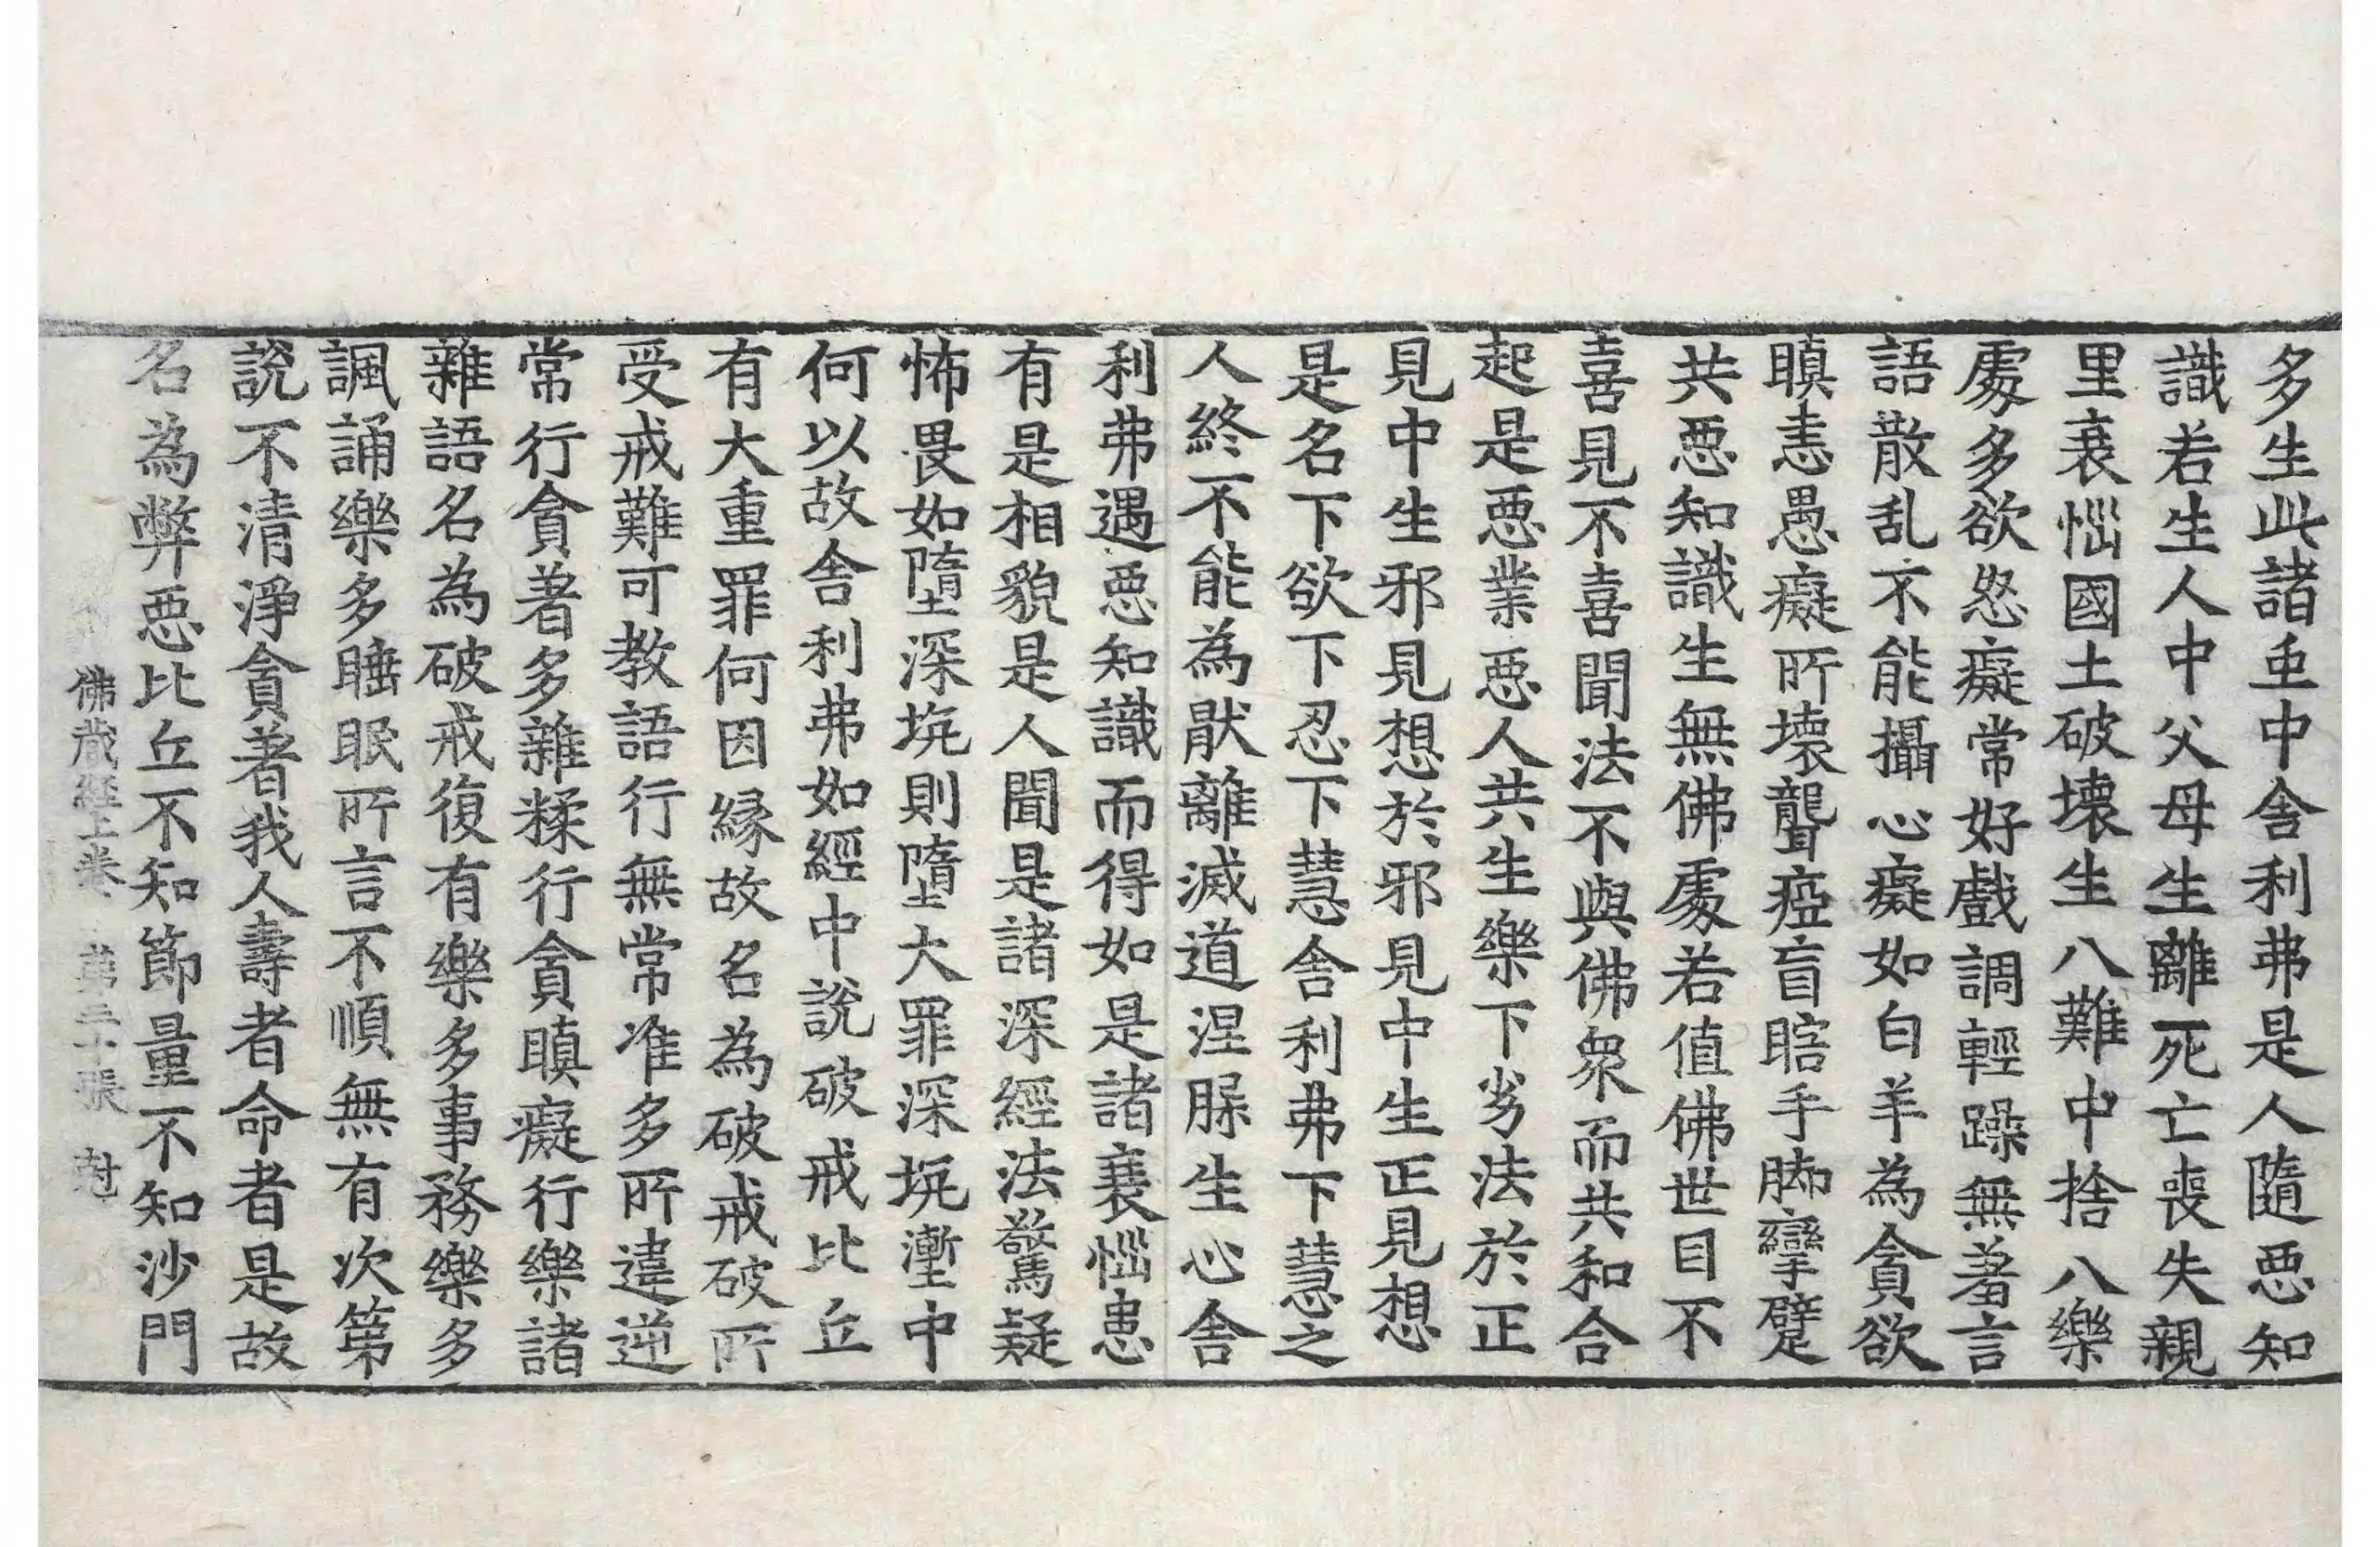 多生此諸𠁅中舍利弗是人隨惡知
識若生人中父母生離死亡喪失親
里衰惱國土破壞生八難中捨八樂
處多欲怒癡常好戲調輕躁無羞言
語散乱不能攝心癡如白羊為貪欲
瞋恚愚癡所壞聾瘂盲瞎手腳攣躄
共惡知識生無佛處若值佛世目不
喜見不喜聞法不與佛眾而共和合
起是惡業惡人共生樂下劣法於正
見中生邪見想於邪見中生正見想
是名下欲下忍下慧舍利弗下慧之
人終不能為猒離滅道涅槃生心舍
利弗遇惡知識而得如是諸衰惱患
有是相貌是人聞是諸深經法驚疑
怖畏如墮深坑則墮大罪深坑壍中
何以故舍利弗如經中說破戒比丘
有大重罪何因緣故名為破戒破所
受戒難可教語行無常准多所違逆
常行貪著多雜糅行貪瞋癡行樂諸
雜語名為破戒復有樂多事務樂多
諷誦樂多睡眠所言不順無有次第
說不清淨貪著我人壽者命者是故
名為弊惡比丘不知節量不知沙門
佛藏經上卷 第三十張 尅